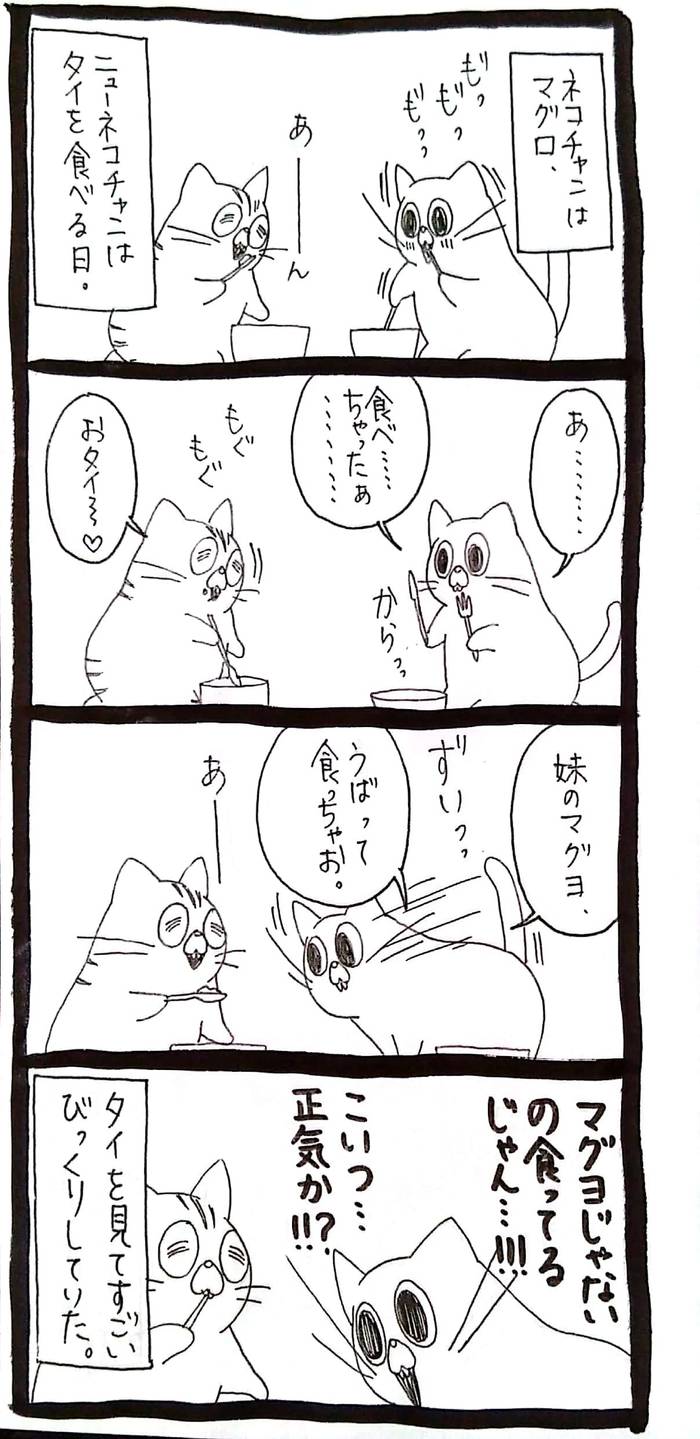 ネコチャンは
マグロ、
もッ
もッ
もッッ
あーん
ニューネコチャンは
タイを食べる日。
あ………
食べ……
ちゃったぁ
…………
からッッ
もぐ
もぐ
おタイ〜〜♡
妹のマグヨ、
ずいッッ
うばって
食っちゃお。
あー
マグヨじゃない
の食ってる
じゃん…!!!
こいつ…
正気か!!?
タイを見てすごい
びっくりしていた。